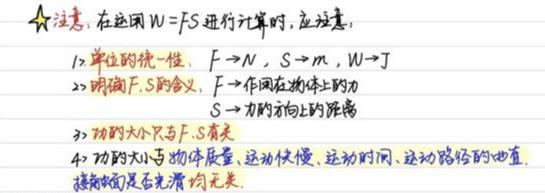 注意:在运用W=FS进行计算时,应注意:
1>.单位的统一性:F→N,S→m,W→J
2>明确F.S的含义:F→作用在物体上的力
S→力的方向上的距离
3>功的大小只与F.S有关
4>功的大小与物体质量、运动快慢、运动时间、运动路径的曲直.
接触面是否光滑均无关.